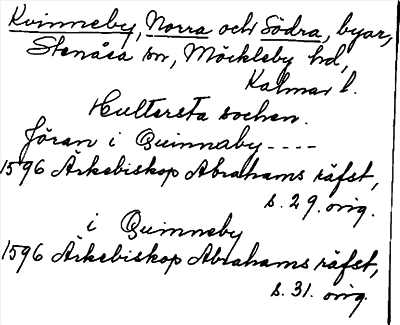 Kvinneby, Norra och Södra, byar,
Stenåsa sn, Möckleby hd,
Kalmar l.
Hultersta sochen.
Jöran i Quinnaby----
1596 Ärkebiskop Abrahams räfst,
s. 29. orig.
i Quinneby
1596 Ärkebiskop Abrahams räfst,
s. 31. orig.